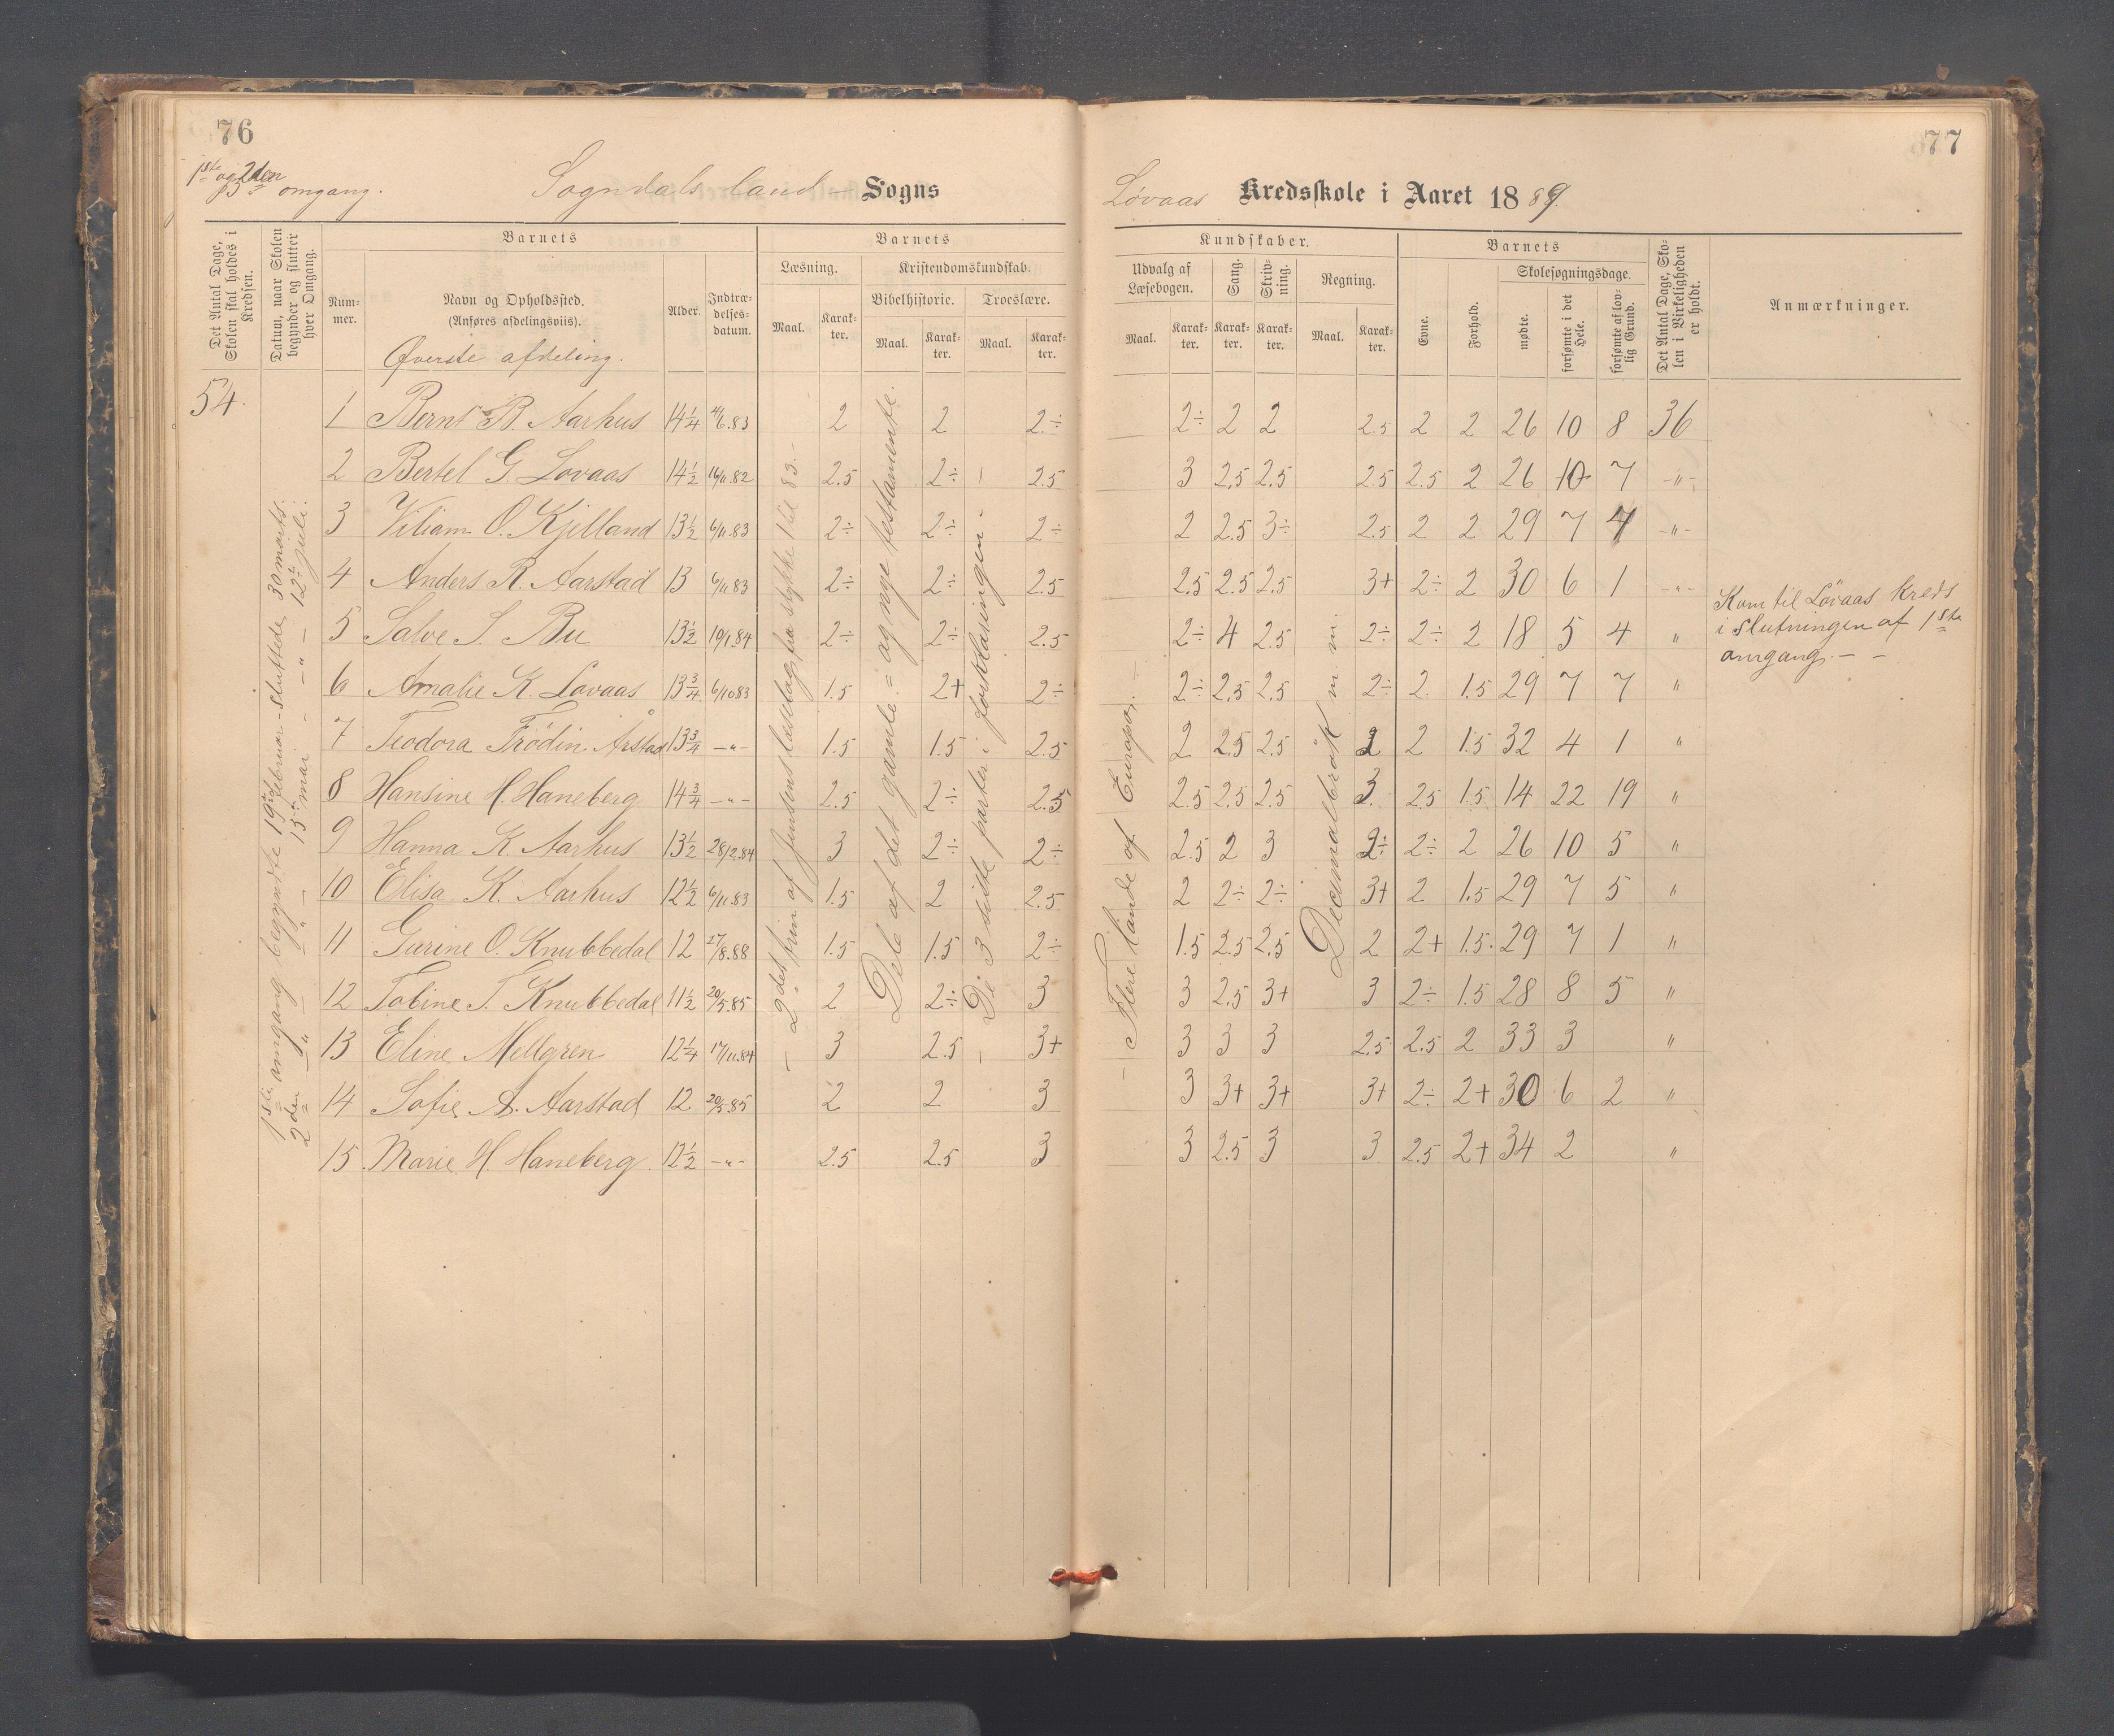 76
1ste og 2den
omgang.
Sogndals land Sogns
Det Antal Dage, Skolen skal holdes i Kredsen.
Datum, naar Skolen begynder og slutter hver Omgang.
Barnets
Nummer.
Navn og Opholdssted.
(Anføres afdelingsviis).
Alder.
Indtrædelsesdatum.
Barnets
Læsning.
Maal.
Karakter.
Kristendomskundskab.
Bibelhistorie.
Maal.
Karakter.
Troeslære.
Maal.
Karakter.
Øverste afdeling.
54.
1ste omgang begyndte 19de februar - sluttede 30 marts.
2den -"- -"- 15de mai - -"- - 12te juli.
2det trin af Jensens læsebog, fra stykke 1 til 83.-
Dele af det gamle = og nye testamente.
De 3 sidste parter i forklaringen -
1 Bernt B. Aarhus 14 1/4 4/6.83 2 2 2÷
2 Bertel G. Lovaas 14 1/2 16/11.82 2.5 2÷ 2.5
3 Viliam O. Kjelland 13 1/2 6/11.83 2÷ 2÷ 2÷
4 Anders R. Aarstad 13 6/11 83 2÷ 2÷ 2.5
5 Salve S. Bu 13 1/2 10/1.84 2÷ 2÷ 2.5
6 Amalie K. Lovaas 13 3/4 6/10 83 1.5 2+ 2÷
7 Teodora Frödin. Årstad 13 3/4 -"- 1.5 1.5 2.5
8 Hansine H. Haneberg 14 3/4 -"- 2.5 2÷ 2.5
9 Hanna K. Aarhus 13 1/2 28/2.84 3 2÷ 2÷
10 Elisa K. Aarhus 12 1/2 6/11.83 1.5 2 2.5
11 Gurine O. Knubbedal 12 27/8.88 1.5 1.5 2÷
12 Tobine T. Knubbedal 11 1/2 20/5.85 2 2÷ 3
13 Eline Mellgren 12 1/4 17/11.84 3 2.5 3+
14 Sofie A. Aarstad 12 20/5.85 2 2 3
15. Marie H. Haneberg 12 1/2 -"- 2.5 2.5 3
77
Løvaas Kredsskole i Aaret 1889.
Kundskaber.
Udvalg af Læsebogen.
Maal.
Karakter.
Sang.
Karakter.
Skrivning.
Karakter.
Regning.
Maal.
Karakter.
Barnets
Evne.
Forhold.
Skolesøgningsdage.
mødte.
forsømte i det Hele.
forsømte af lovlig Grund.
Det Antal Dage, Skolen i Virkeligheden er holdt.
Anmærkninger.
Flere lande af Europa.
Decimalbrök m. m.
2÷ 2 2 2.5 2 2 26 10 8 36
3 2.5 2.5 2.5 2.5 2 26 10 7 -"-
2 2.5 3÷ 2.5 2 2 29 7 4 -"-
2.5 2.5 2.5 3+ 2÷ 2 30 6 1 -"-
2÷ 4 2.5 2÷ 2÷ 2 18 5 4 "
Kom til Lövaas kreds
i slutningen af 1ste
omgang. - -
2÷ 2.5 2.5 2÷ 2. 1.5 29 7 7 "
2 2.5 2.5 2 2 1.5 32 4 1 "
2.5 2.5 2.5 3 2.5 1.5 14 22 19 "
2.5 2 3 2÷ 2÷ 2 26 10 5 "
2 2÷ 2÷ 3+ 2 1.5 29 7 5 "
1.5 2.5 2.5 2 2+ 1.5. 29 7 1 "
3 2.5 3+ 3 2÷ 1.5 28 8 5 "
3 3 3 2.5 2.5 2 33 3 "
3 3+ 3+ 3+ 2÷ 2+ 30 6 2 "
3 2.5 3 3 2.5 2+ 34 2 "